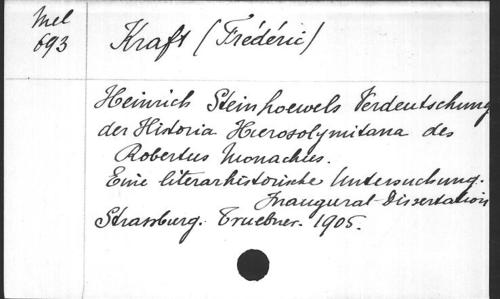 Mel
693
Kraft (Frédéric)
Heinrich Steinhoewels Verdeutschung
der Historia Hierosolymitana des
Robertus Monachus.
Eine literarhistorische Untersuchung.
Inaugural Dissertation
Strassburg. Truebner. 1905.